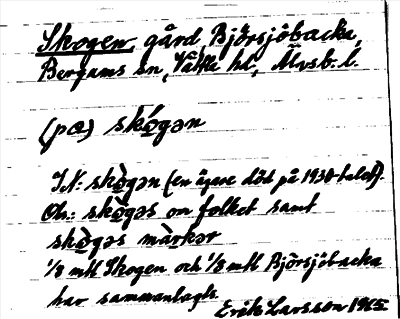 Skogen, gård, Björsjöbacka,
Bergums sn, Vättle hd, Älvsb. l.
(pa) skó̱gən
IN: skò̱gən (en ägare död på 1930-talet).
Ös.: skò̱gəs om folket samt
skò̱gəs màrkər
1/8 mtl Skogen och 1/8 mtl Björsjöbacka
har sammanlagts.
Erik Larsson 1965.